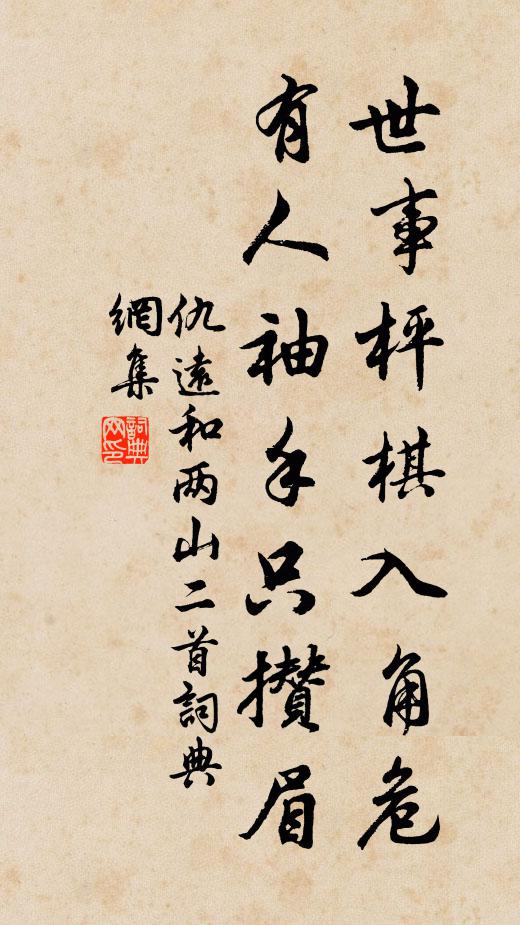 世事枰棋入角危
有人袖手只攢眉
仇遠和两山二首詞典
網集
詞典网印